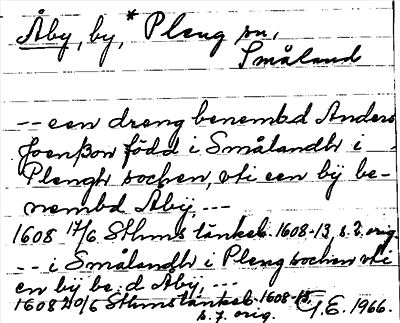 Åby, by, * Pleng sn,
Småland
-- een dreng benembd Anders
Joenßon född i Smålandh i
Plengh sochen, vti een bÿ be-
nembd Åbij, ---
1608 17/6 Sthms tänkeb. 1608-13, s. 2. orig.
-- i Smålandh i Pleng sochen vti
en bÿ be.d Åbÿ, ---
1608 20/6 Sthms tänkeb. 1608-13,
s. 7. orig. G.E. 1966.